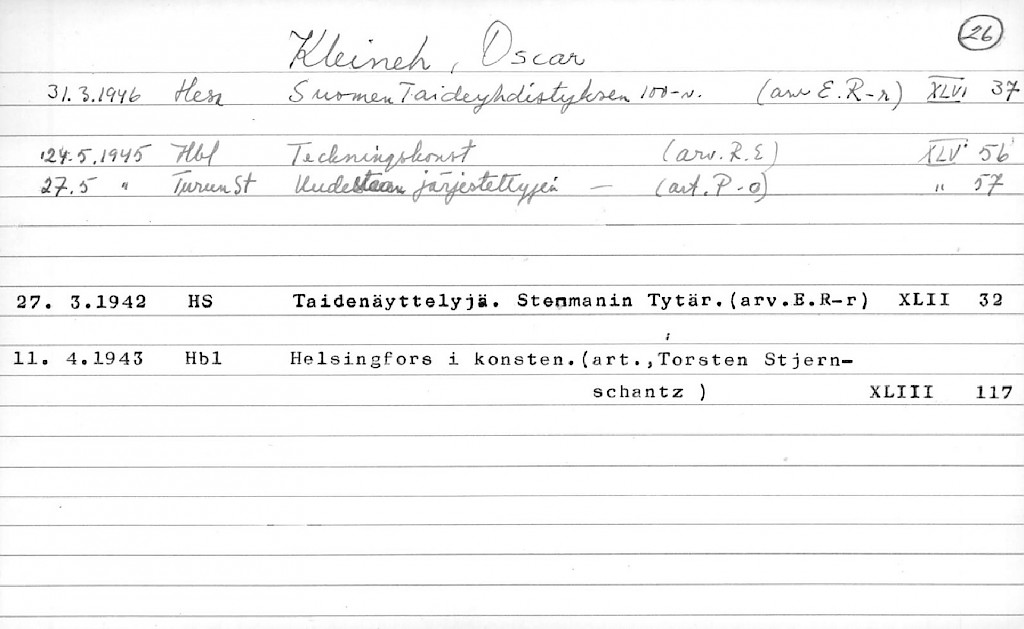 26
Kleineh, Oscar
31.3.1946 Hesa Suomen Taideyhdistyksen 100-v. (arv E.R-r) XLVI 37
24.5.1945 Hbl Teckningskonst (arv. R.E) XLV 56
27.5 " Turun St Uudestaan järjestettyjen — (art. P-o) " 57
27. 3.1942 HS Taidenäyttelyjä. Stenmanin Tytär.(arv.E.R-r) XLII 32
11. 4.1943 Hbl Helsingfors i konsten.(art.,Torsten Stjern-
schantz ) XLIII 117